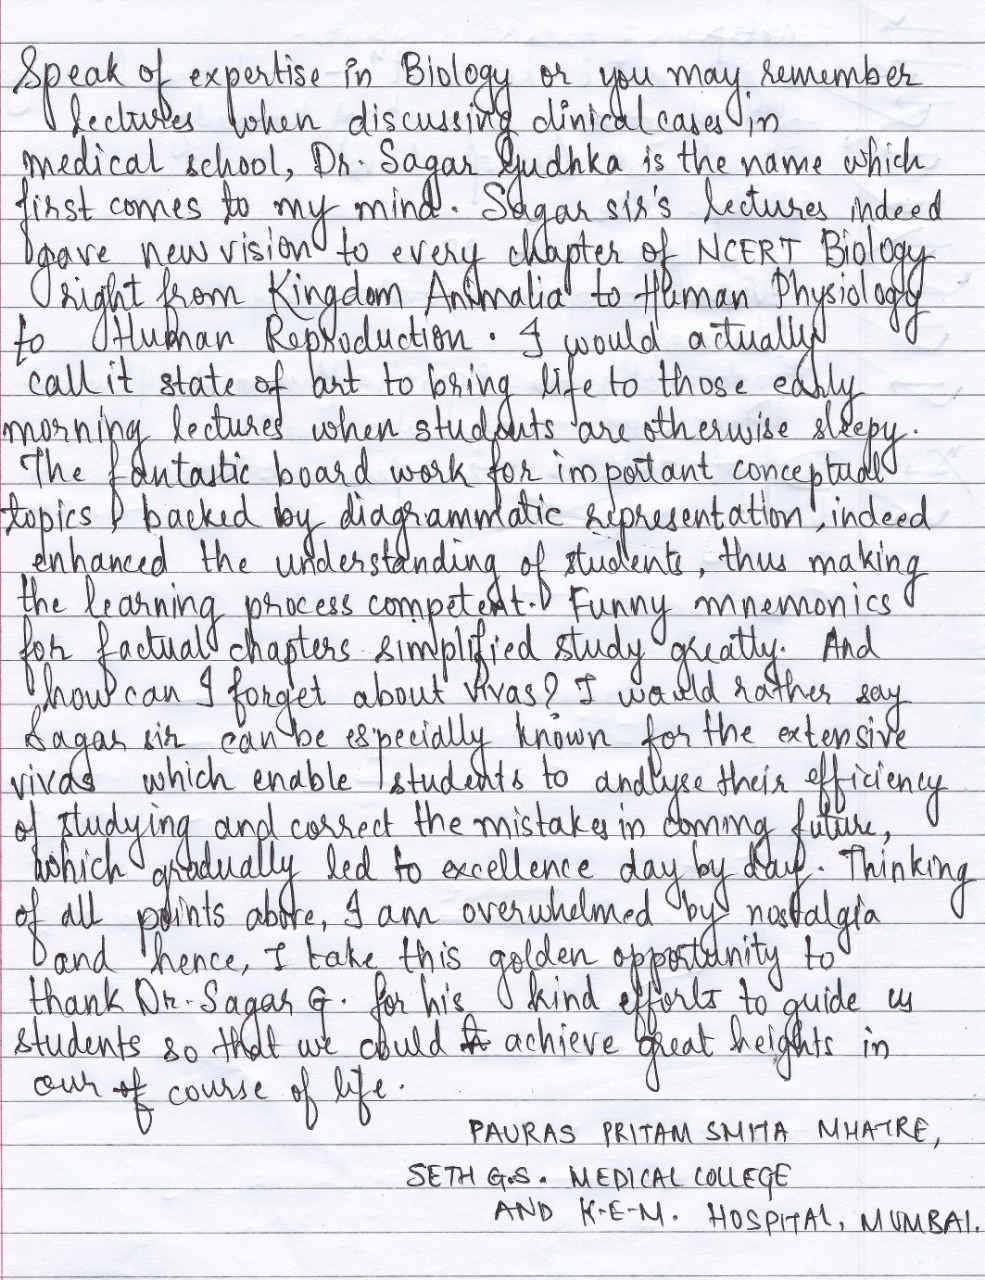 Speak of expertise in Biology or you may remember
lectures when discussing clinical cases in
medical school, Dr. Sagar Gudhka is the name which
first comes to my mind. Sagar sir's lectures indeed
gave new vision to every chapter of NCERT Biology
right from Kingdom Animalia to Human Physiology
to Human Reproduction. I would actually
call it state of art to bring life to those early
morning lectures when students are otherwise sleepy.
The fantastic board work for important conceptual
topics, backed by diagrammatic representation, indeed
enhanced the understanding of students, thus making
the learning process competent. Funny mnemonics
for factual chapters simplified study greatly. And
how can I forget about vivas? I would rather say
Sagar sir can be especially known for the extensive
vivas which enable students to analyse their efficiency
of studying and correct the mistakes in coming future,
which gradually led to excellence day by day. Thinking
of all points above, I am overwhelmed by nostalgia
and hence, I take this golden opportunity to
thank Dr. Sagar G. for his kind efforts to guide us
students so that we could achieve great heights in
our course of life.
PAURAS PRITAM SMITA MHATRE,
SETH G.S. MEDICAL COLLEGE
AND K.E.M. HOSPITAL, MUMBAI.